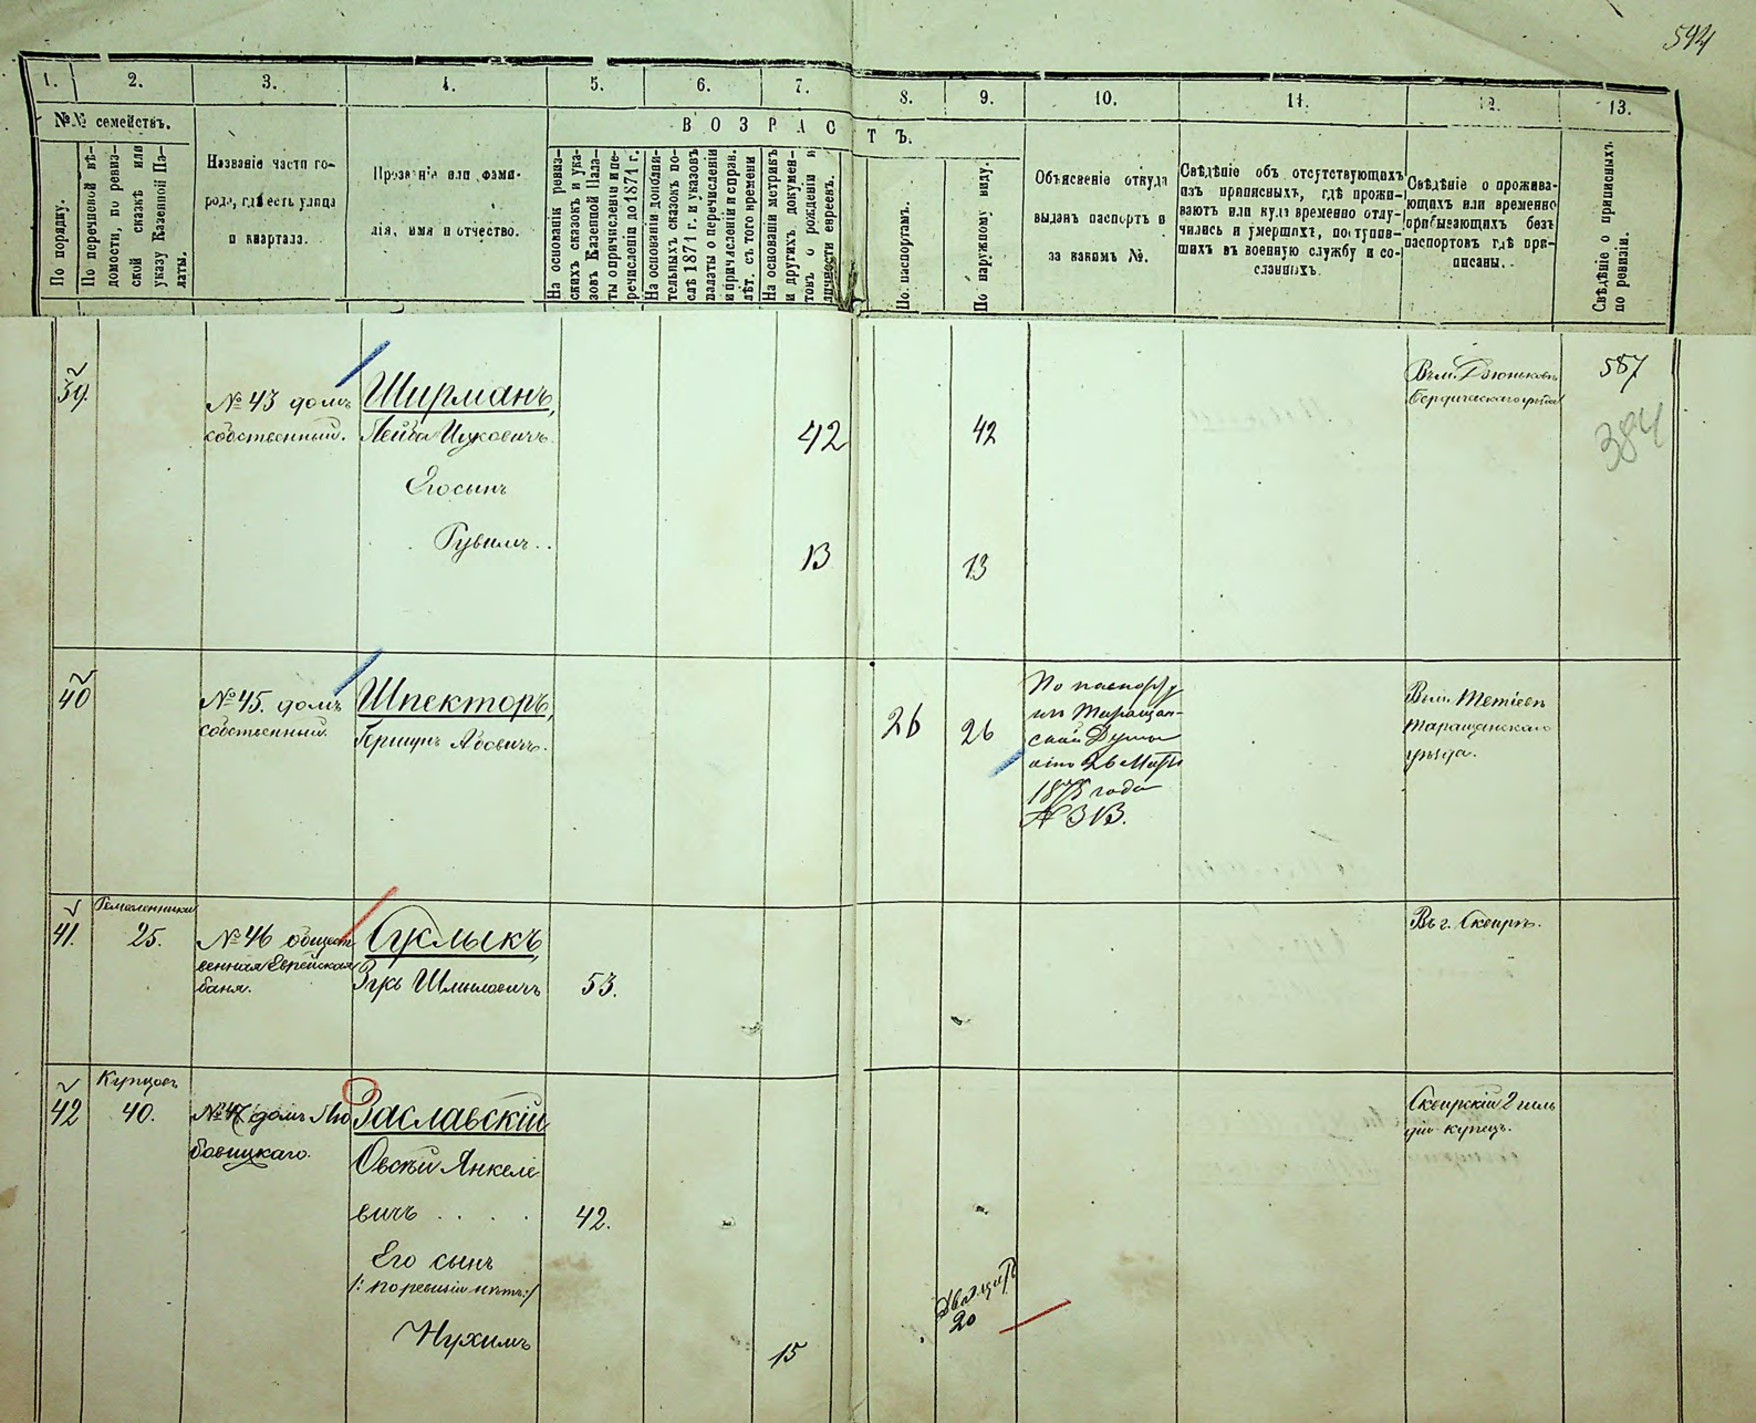 594
1. 2. 3. 4. 5. 6. 7. 8. 9. 10. 11. 12. 13.
№№ семействъ.
По порядку.
По перечневой вѣ-
домости, по ревиз-
ской сказкѣ или
указу Казенной Па-
латы.
Названіе части го-
рода, гдѣ есть улица
и квартала.
Прозваніе или фами-
лія, имя и отчество.
ВОЗРАСТЪ.
На основаніи ревиз-
скихъ сказокъ и ука-
зовъ Казенной Пала-
ты о причисленіи и пе-
речисленіи до 1871 г.
На основаніи дополни-
тельныхъ сказокъ по-
слѣ 1871 г. и указовъ
палаты о перечисленіи
и причисленіи и справ.
лѣт. съ того времени
На основаніи метрикъ
и другихъ докумен-
товъ о рожденіи и
личности евреевъ.
По паспортамъ.
По наружному виду.
Объясненіе откуда
выданъ паспортъ и
за какимъ №.
Свѣдѣніе объ отсутствующихъ
изъ приписныхъ, гдѣ прожи-
ваютъ или куда временно отлу-
чились и умершихъ, поступив-
шихъ въ военную службу и со-
сланныхъ.
Свѣдѣніе о прожива-
ющихъ или временно
прибывающихъ безъ
паспортовъ гдѣ при-
писаны.
Свѣдѣніе о приписныхъ
по ревизіи.
39.
№ 43 домъ
собственный.
Ширманъ,
Лейба Ицковичъ
42
42
Въ м. Дзюньковѣ
Бердичевскаго уѣзда
587
384
Его сынъ
Рувимъ..
13
13
40
№ 45. домъ
собственный.
Шпекторъ,
Гершунъ Абовичъ.
26
26
По паспорту
изъ Таращан-
ской Думы
отъ 26 Марта
1875 года
№ 313.
Въ м. Тетіевѣ
Таращанскаго
уѣзда.
41.
25.
№ 46 обществ
венная Еврейская
баня.
Суклыкъ,
Зусь Шмилевичъ
53.
Въ г. Сквирѣ.
42
Купцовъ
40.
№ 47 домъ Лю
бовицкаго.
Заславскій
Овсѣй Янкеле
вичъ . . . .
42.
Сквирскій 2 гиль
діи купецъ.
Его сынъ
/: по ревизіи нѣтъ :/
Нухимъ
15
20